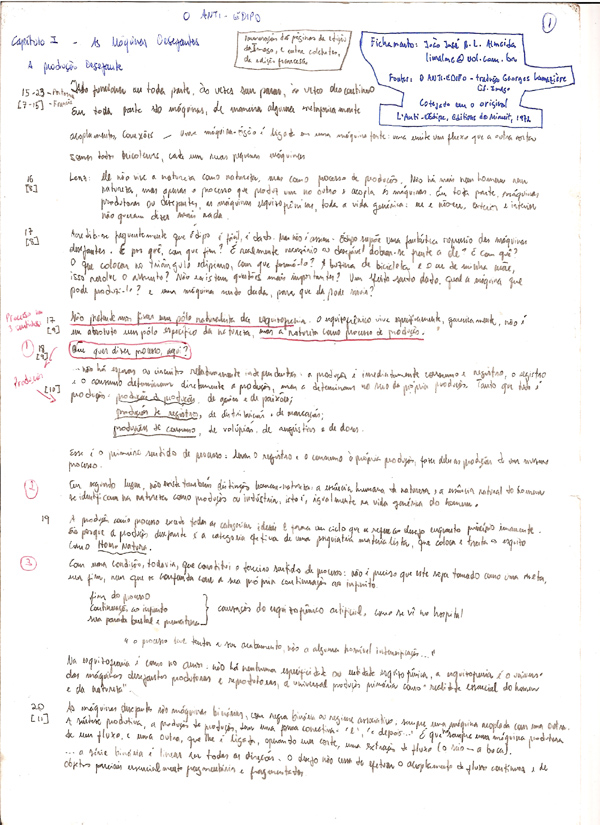 O ANTI-ÉDIPO
1
Capítulo I - As Máquinas Desejantes
Numeração das páginas da edição da Imago, e entre colchetes, da edição francesa.
Fichamento: João José R. L. Almeida
Fontes: O ANTI-ÉDIPO - tradução Georges Lamazière
Ed. Imago
Cotejado com o original
L'Anti-Œdipe, Éditions de Minuit, 1972
A produção desejante
15-23
[7-15]
Isto funciona em toda parte, às vezes sem parar, às vezes descontínuo
Em toda parte são máquinas, de maneira alguma metaforicamente
acoplamentos, conexões — uma máquina-órgão é ligada em uma máquina fonte: uma emite um fluxo que a outra corta
Somos todos bricoleurs, cada um suas pequenas máquinas
16
[8]
Lenz: ele não vive a natureza como natureza, mas como processo de produção. Não há mais nem homem nem
natureza, mas apenas o processo que produz um no outro e acopla as máquinas. Em toda parte, máquinas
produtoras ou desejantes, as máquinas esquizofrênicas, toda a vida genérica: eu e não-eu, exterior e interior
não querem dizer mais nada.
17
[8]
Acredita-se frequentemente que Édipo é fácil, é dado. Mas não é assim. Édipo supõe uma fantástica repressão das máquinas
desejantes. E por quê, com que fim? É realmente necessário ou desejável dobrar-se frente a ele? E com quê?
O que colocar no triângulo edipiano, com que formá-lo? A buzina de bicicleta e o cu de minha mãe,
isso resolve o assunto? Não existem questões mais importantes? Um efeito sendo dado, qual a máquina que
pode produzi-lo? e uma máquina sendo dada, para que ela pode servir?
Processo em 3 sentidos
17
[9]
Não pretendemos fixar um pólo naturalista da esquizofrenia. O esquizofrênico vive especificamente, genericamente, não é
em absoluto um pólo específico da natureza, mas a natureza como processo de produção.
1
18
[9]
Que quer dizer processo, aqui?
Produção
[10]
→ não há esferas ou circuitos relativamente independentes: a produção é imediatamente consumo e registro, o registro
e o consumo determinam diretamente a produção, mas a determinam no seio da própria produção. Tanto que tudo é
produção: produção de produção, de ações e de paixões;
produções de registro, de distribuições e de marcações;
produções de consumo, de volúpias, de angústias e de dores.
Esse é o primeiro sentido de processo: levar o registro e o consumo à própria produção, fazer deles as produções de um mesmo
processo.
2
Em segundo lugar, não existe também distinção homem-natureza: a essência humana da natureza e a essência natural do homem
se identificam na natureza como produção ou indústria, isto é, igualmente na vida genérica do homem.
19
A produção como processo excede todas as categorias ideais e forma um ciclo que se refere ao desejo enquanto princípio imanente.
Eis porque a produção desejante é a categoria efetiva de uma psiquiatria materialista, que coloca e trata o esquizo
como Homo Natura.
3
Com uma condição, todavia, que constitui o terceiro sentido de processo: não é preciso que este seja tomado como uma meta,
um fim, nem que se confunda com a sua própria continuação ao infinito.
fim do processo
continuação ao infinito
sua parada brutal e prematura
} causação do esquizofrênico artificial, como se vê no hospital
"o processo que tende a seu acabamento, não a alguma horrível intensificação..."
Na esquizofrenia é como no amor: não há nenhuma especificidade ou entidade esquizofrênica, a esquizofrenia é o universo
das máquinas desejantes produtoras e reprodutoras, a universal produção primária como "realidade essencial do homem
e da natureza".
20
[11]
As máquinas desejantes são máquinas binárias, com regra binária ou regime associativo; sempre uma máquina acoplada com uma outra.
A síntese produtiva, a produção de produção, tem uma forma conectiva: "e", "e depois..." É que sempre uma máquina produtora
de um fluxo, e uma outra, que lhe é ligada, operando um corte, uma extração de fluxo (o seio — a boca).
... a série binária é linear em todas as direções. O desejo não cessa de efetuar o acoplamento de fluxos contínuos e de
objetos parciais essencialmente fragmentários e fragmentados